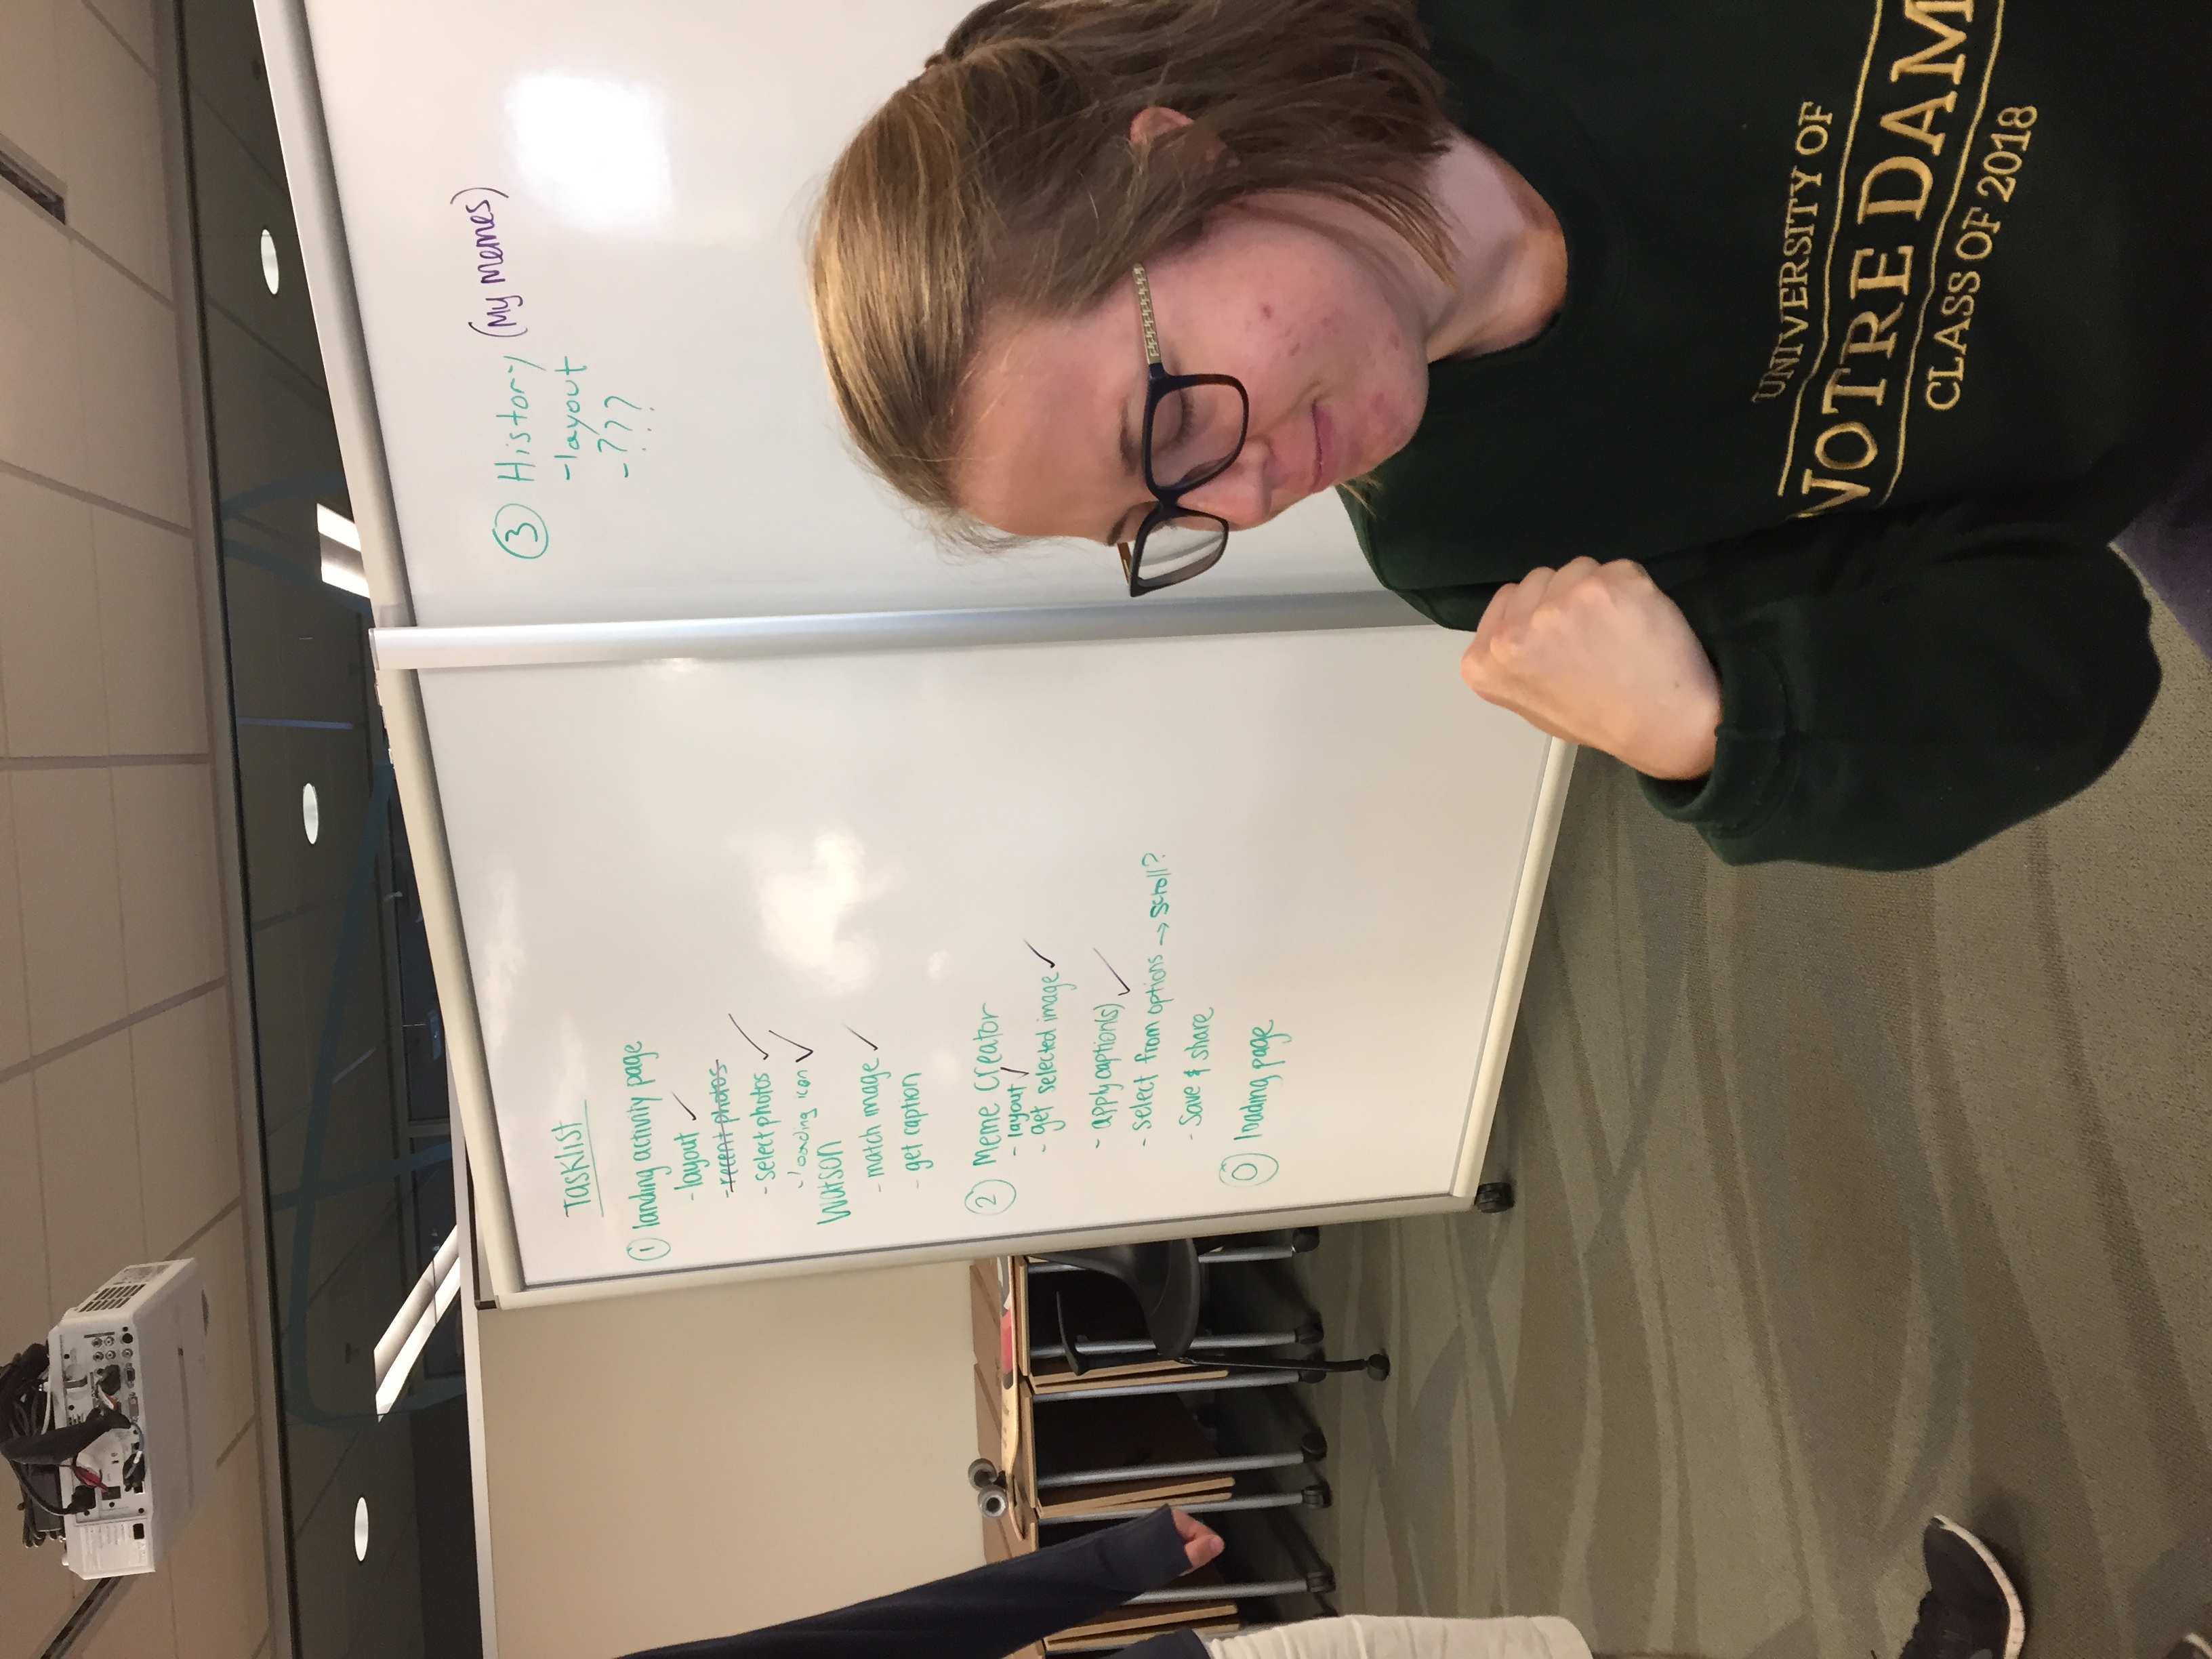 Tasklist
① landing activity page
- layout ✓
- recent photos
- select photos ✓
- loading icon ✓
Watson
- match image ✓
- get caption
② Meme Creator
- layout ✓
- get selected image ✓
- apply caption(s) ✓
- select from options → scroll?
- Save & share
⓪ loading page
③ History (My Memes)
- layout
- ???
UNIVERSITY OF
NOTRE DAM
CLASS OF 2018